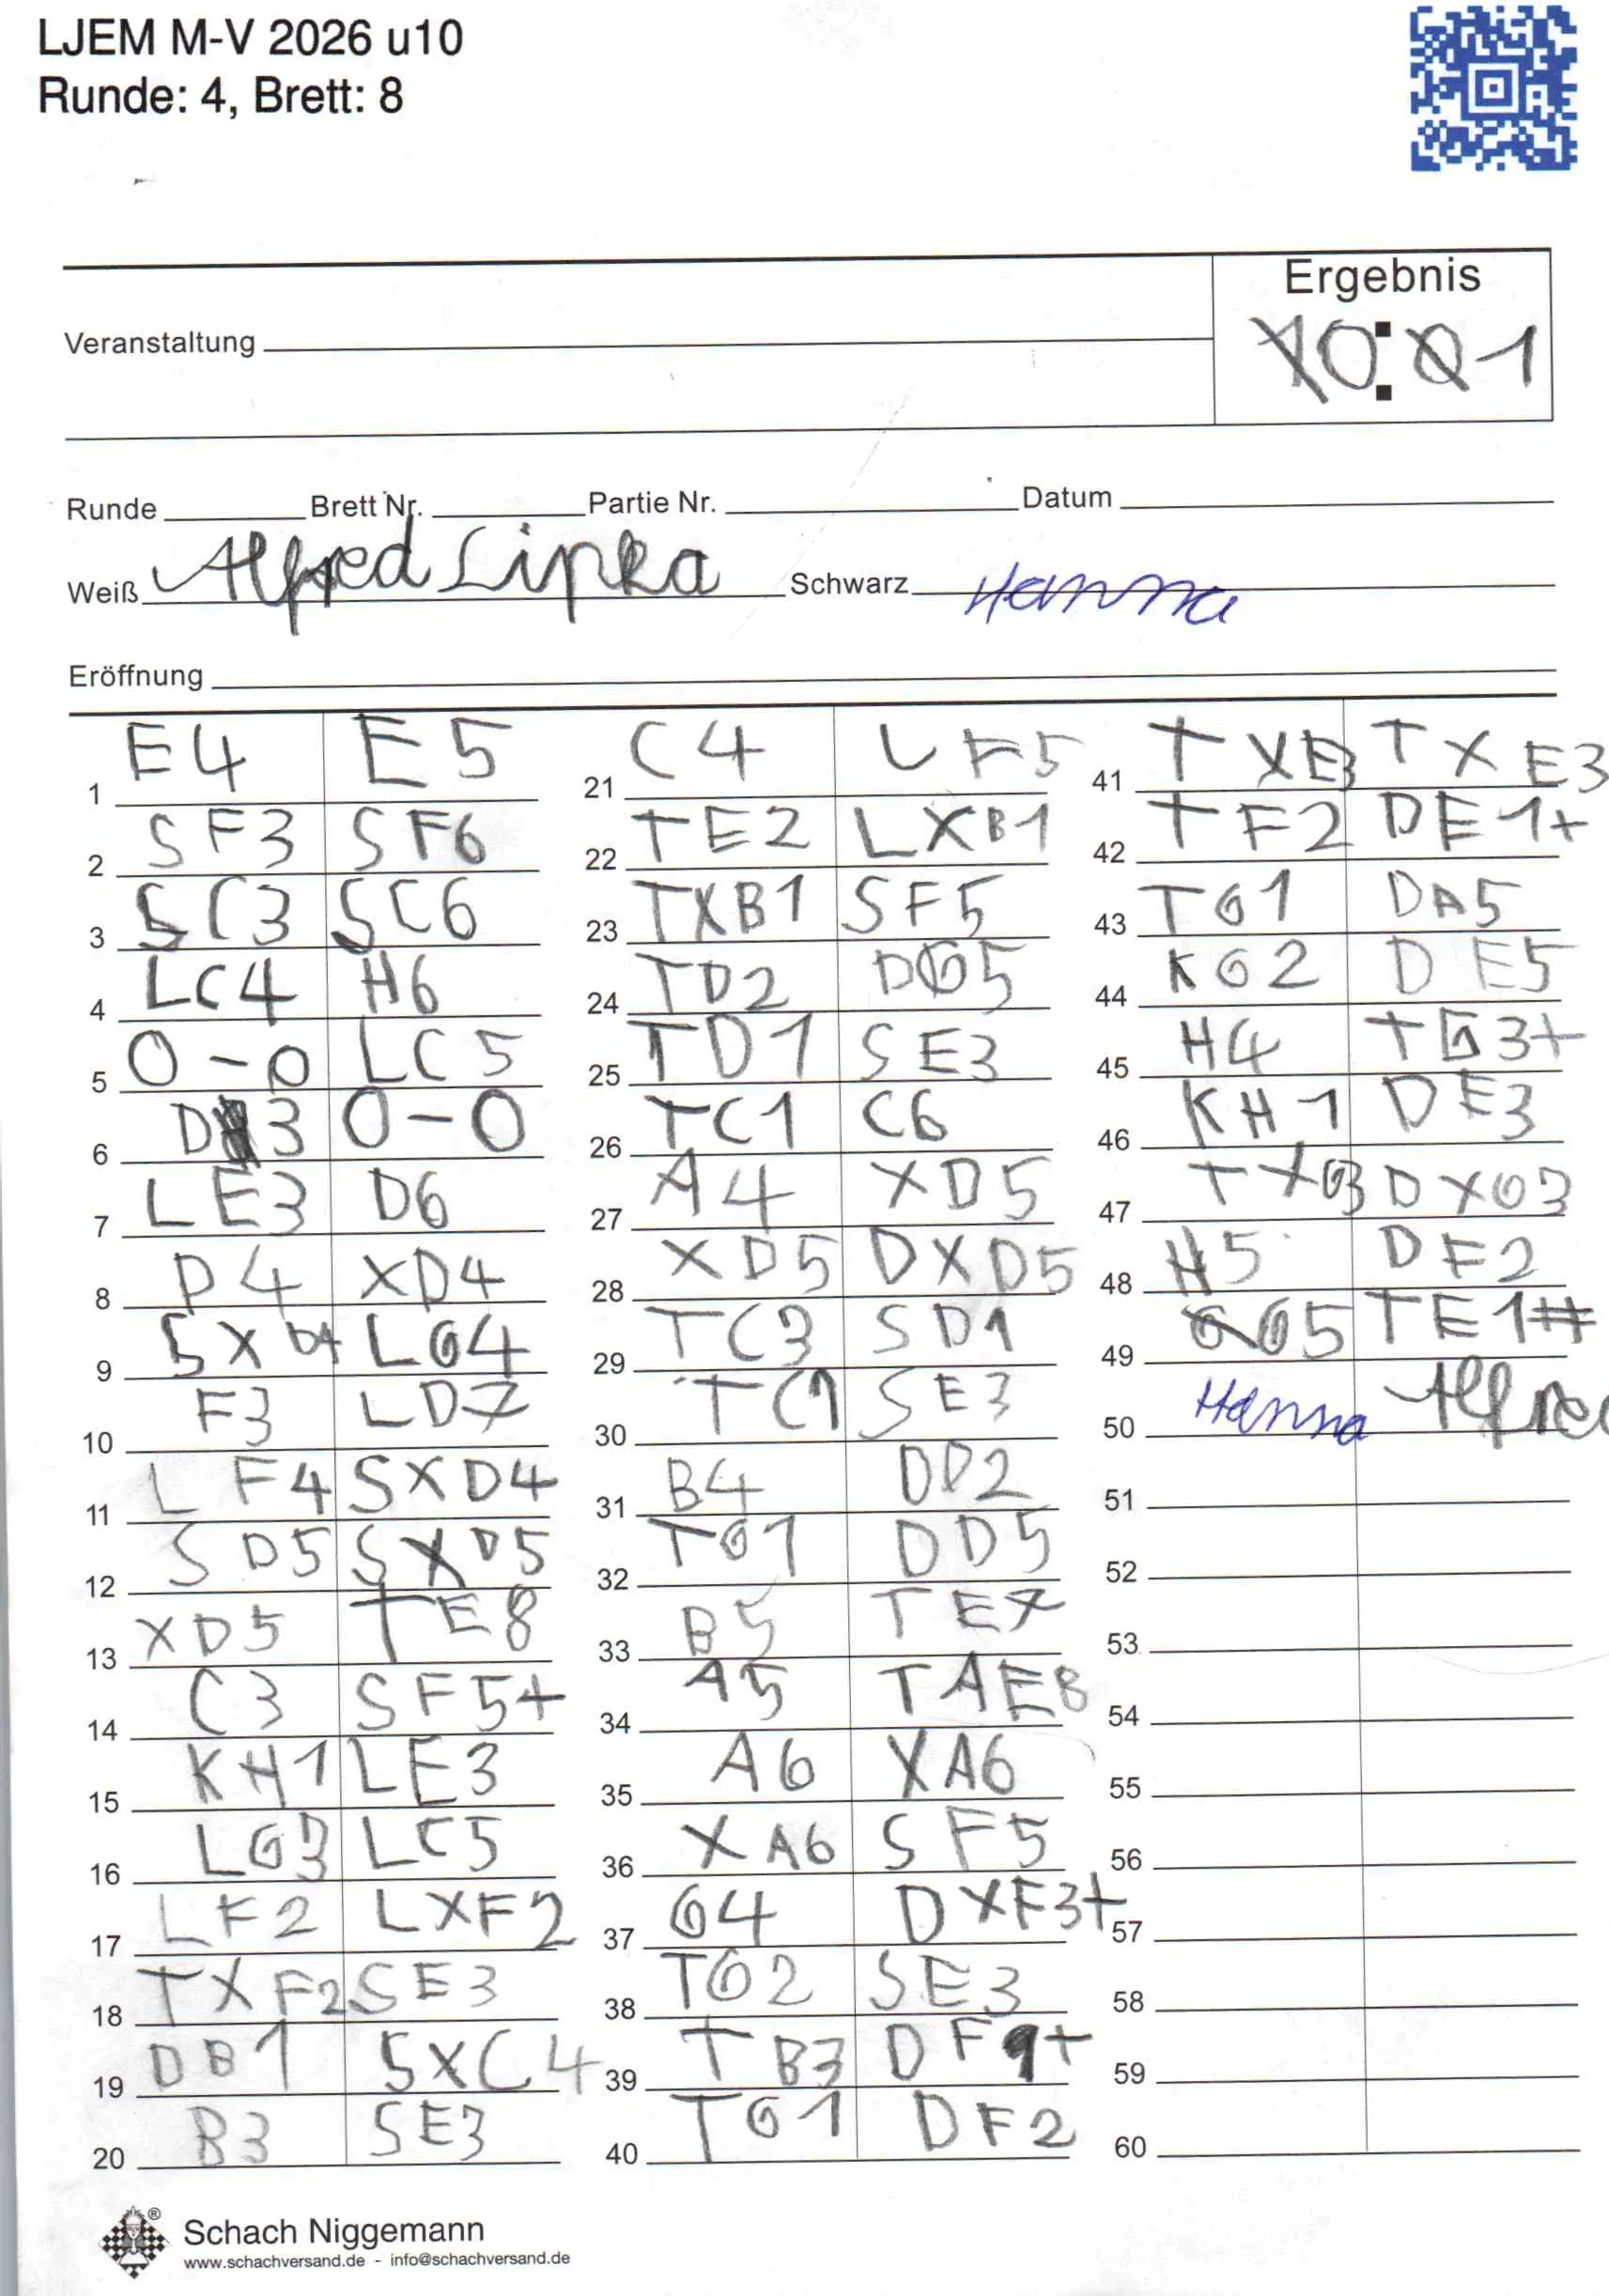 LJEM M-V 2026 u10
Runde: 4, Brett: 8
Ergebnis
Veranstaltung
0:1
Runde Brett Nr. Partie Nr. Datum
Weiß Alfred Lipka Schwarz Hanna
Eröffnung
1 E4 E5
2 SF3 SF6
3 SC3 SC6
4 LC4 H6
5 0-0 LC5
6 D3 0-0
7 LE3 D6
8 D4 XD4
9 SXD4 LG4
10 F3 LD7
11 LF4 SXD4
12 SD5 SXD5
13 XD5 TE8
14 C3 SF5+
15 KH1 LE3
16 LG3 LC5
17 LF2 LXF2
18 TXF2 SE3
19 DB1 SXC4
20 B3 SE3
21 C4 LF5
22 TE2 LXB1
23 TXB1 SF5
24 TD2 DG5
25 TD1 SE3
26 TC1 C6
27 A4 XD5
28 XD5 DXD5
29 TC3 SD1
30 TC1 SE3
31 B4 DD2
32 TG1 DD5
33 B5 TE7
34 A5 TAE8
35 A6 XA6
36 XA6 SF5
37 G4 DXF3+
38 TG2 SE3
39 TB3 DF1+
40 TG1 DF2
41 TXE3 TXE3
42 TF2 DE1+
43 TG1 DA5
44 KG2 DE5
45 H4 TG3+
46 KH1 DE3
47 TXG3 DXG3
48 H5 DF2
49 G5 TE1#
50 Hanna Alfred
51
52
53
54
55
56
57
58
59
60
Schach Niggemann
www.schachversand.de - info@schachversand.de